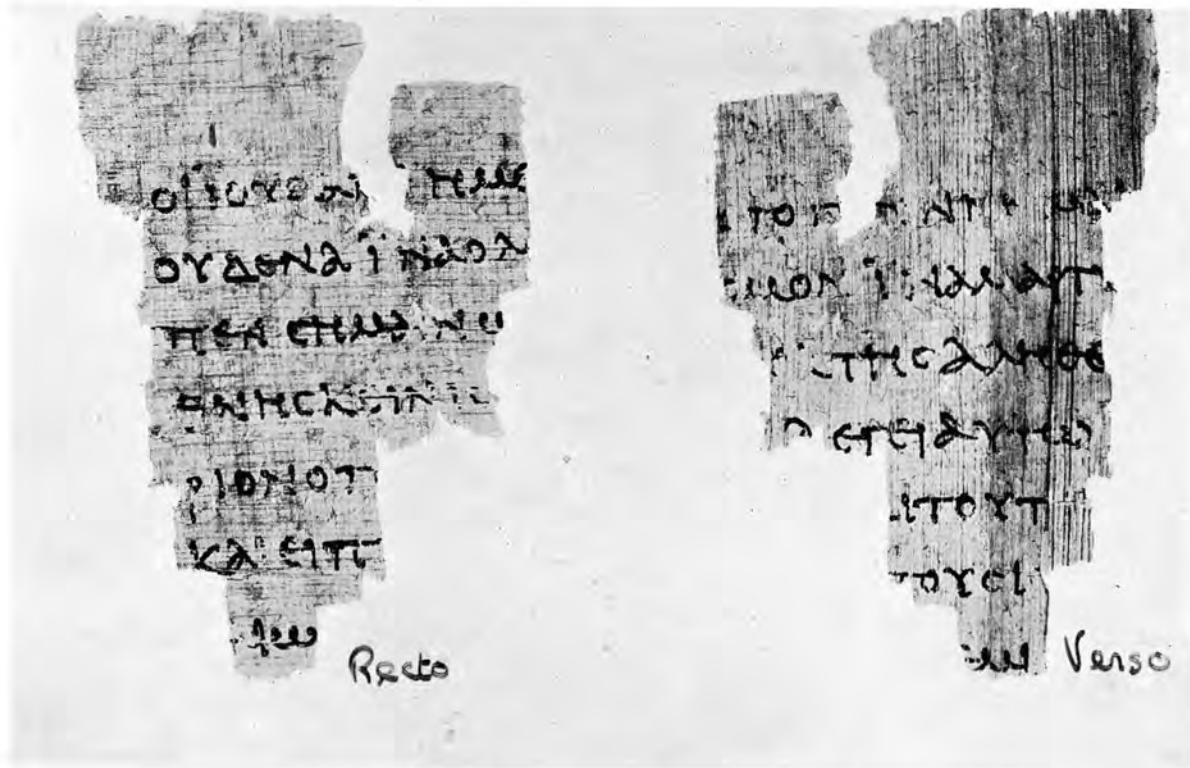 ΟΙ ΪΟΥΔΑΙ ΗΜΕ
ΟΥΔΕΝΑ ΪΝΑ Ο Λ
ΠΕΝ CΗΜΑΙΝΩ
ΘΝΗCΚΕΙΝ ΙC
ΡΙΟΝ Ο Π
ΚΑΙ ΕΙΠ
Recto
ΤΟ
CΜΟΝ ΪΝΑ ΜΑΡΤΥ
ΤΗC ΑΛΗΘΕ
ΛΕΓΕΙ ΑΥΤΩ
ΤΟΥΤ
ΤΟΥC Ι
Verso